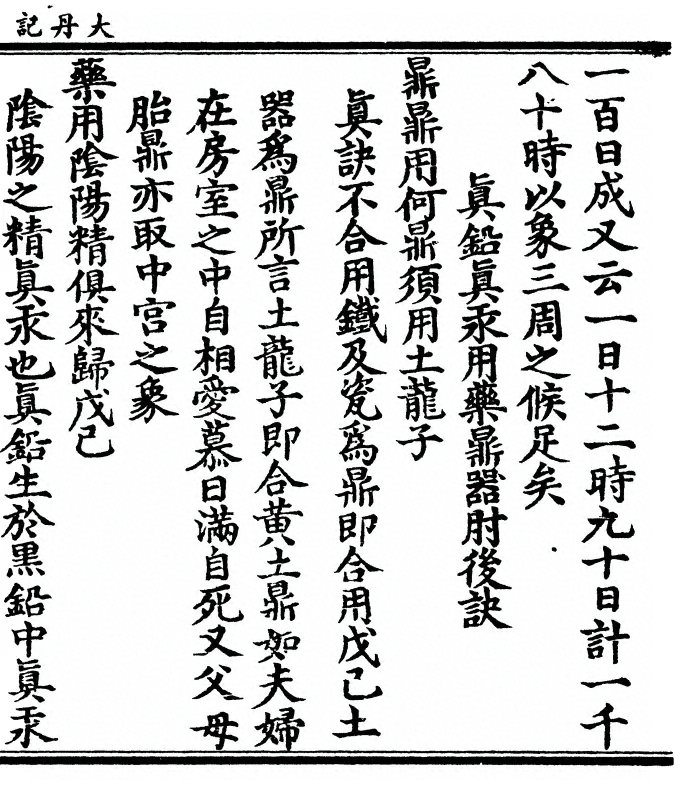 大丹記
一百日成又云一日十二時九十日計一千
八十時以象三周之候足矣
真鉛真汞用藥鼎器肘後訣
鼎鼎用何鼎須用土龍子
真訣不合用鐵及瓷為鼎即合用戊己土
器為鼎所言土龍子即合黃土鼎如夫婦
在房室之中自相愛慕日滿自死又父母
胎鼎亦取中宮之象
藥用陰陽精俱來歸戊己
陰陽之精真汞也真鉛生於黑鉛中真汞